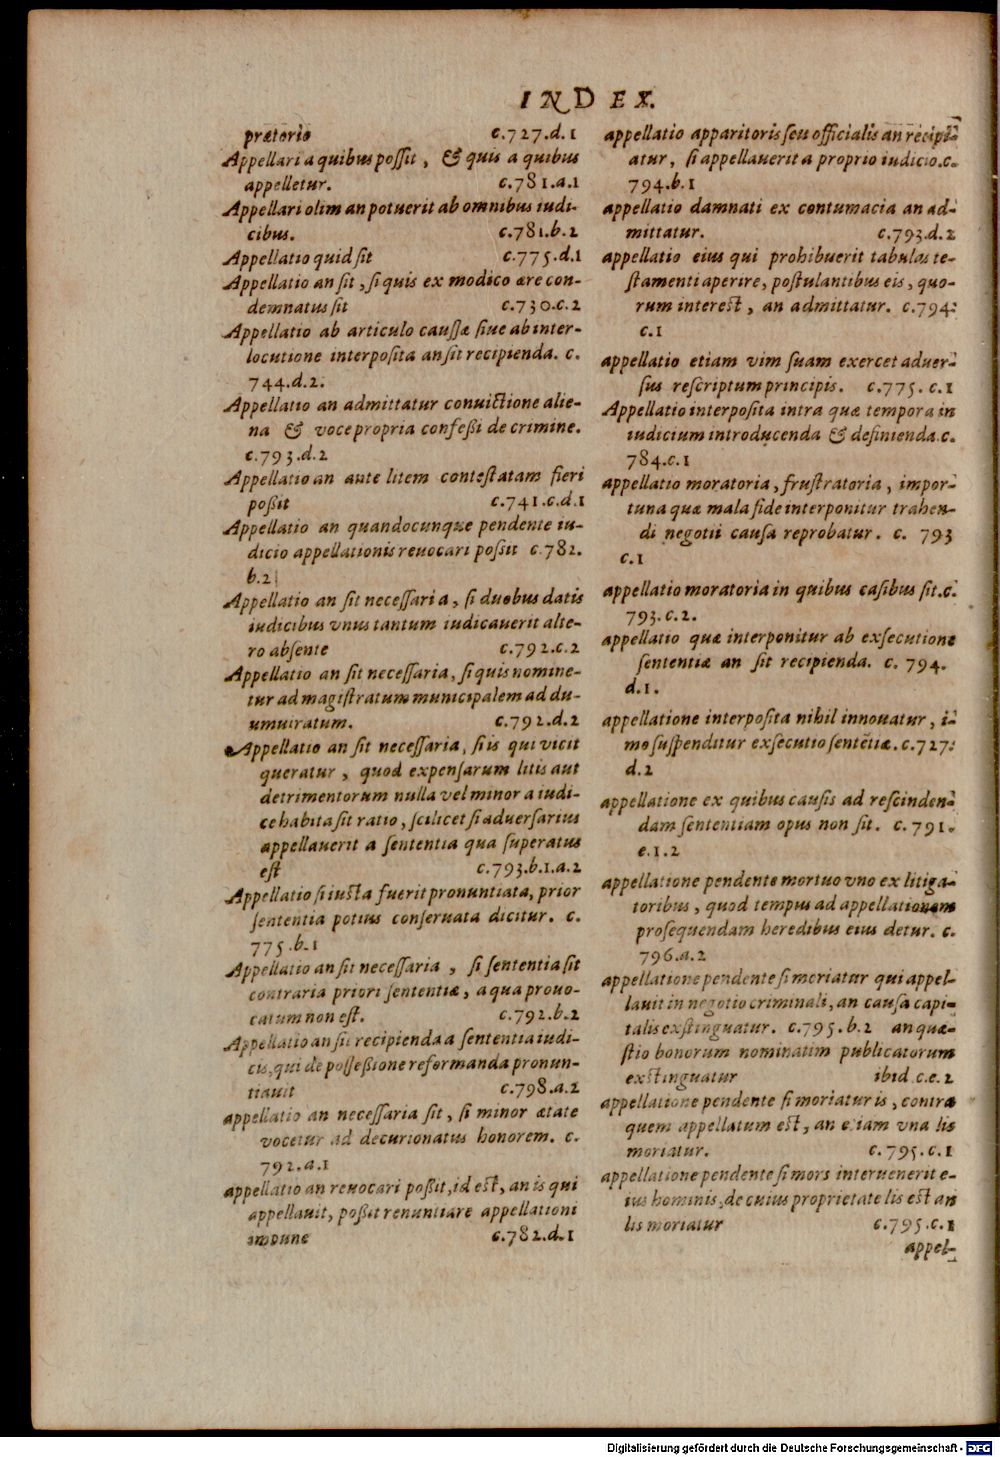 INDEX.
prætorio c.727.d.1
Appellari a quibus poſſit, & quis a quibus
appelletur. c.781.a.1
Appellari olim an potuerit ab omnibus iudi-
cibus. c.781.b.2
Appellatio quid ſit c.775.d.1
Appellatio an ſit, ſi quis ex modico ære con-
demnatus ſit c.730.c.2
Appellatio ab articulo cauſſæ ſiue ab inter-
locutione interpoſita an ſit recipienda. c.
744.d.2.
Appellatio an admittatur conuictione alie-
na & voce propria confeßi de crimine.
c.793.d.2
Appellatio an ante litem conteſtatam fieri
poßit c.741.c.d.1
Appellatio an quandocunque pendente iu-
dicio appellationis reuocari poſſit c.782.
b.2
Appellatio an ſit neceſſaria, ſi duobus datis
iudicibus vnus tantum iudicauerit alte-
ro abſente c.792.c.2
Appellatio an ſit neceſſaria, ſi quis nomine-
tur ad magiſtratum municipalem ad du-
umuiratum. c.792.d.2
Appellatio an ſit neceſſaria, ſi is qui vicit
queratur, quod expenſarum litis aut
detrimentorum nulla vel minor a iudi-
ce habita ſit ratio, ſcilicet ſi aduerſarius
appellauerit a ſententia qua ſuperatus
eſt c.793.b.1.a.2
Appellatio ſi iuſta fuerit pronuntiata, prior
ſententia potius conſeruata dicitur. c.
775.b.1
Appellatio an ſit neceſſaria, ſi ſententia ſit
contraria priori ſententiæ, a qua prouo-
catum non eſt. c.792.b.2
Appellatio an ſit recipienda a ſententia iudi-
cis, qui de poſſeßione reformanda pronun-
tiauit c.798.a.2
appellatio an neceſſaria ſit, ſi minor ætate
vocetur ad decurionatus honorem. c.
792.a.1
appellatio an reuocari poßit, id eſt, an is qui
appellauit, poßit renuntiare appellationi
impune c.782.d.1
appellatio apparitoris ſeu officialis an recipi-
atur, ſi appellauerit a proprio iudicio.c.
794.b.1
appellatio damnati ex contumacia an ad-
mittatur. c.793.d.2
appellatio eius qui prohibuerit tabulas te-
ſtamenti aperire, poſtulantibus eis, quo-
rum intereſt, an admittatur. c.794.
c.1
appellatio etiam vim ſuam exercet aduer-
ſus reſcriptum principis. c.775.c.1
Appellatio interpoſita intra quæ tempora in
iudicium introducenda & definienda.c.
784.c.1
appellatio moratoria, fruſtratoria, impor-
tuna quæ mala fide interponitur trahen-
di negotii cauſa reprobatur. c. 793
c.1
appellatio moratoria in quibus caſibus ſit.c.
793.c.2.
appellatio quæ interponitur ab exſecutione
ſententiæ an ſit recipienda. c. 794.
d.1.
appellatione interpoſita nihil innouatur, i-
mo ſuſpenditur exſecutio ſentētiæ.c.727.
d.2
appellatione ex quibus cauſis ad reſcinden-
dam ſententiam opus non ſit. c.791.
e.1.2
appellatione pendente mortuo vno ex litiga-
toribus, quod tempus ad appellationem
proſequendam heredibus eius detur. c.
796.a.2
appellatione pendente ſi moriatur qui appel-
lauit in negotio criminali, an cauſa capi-
talis exſtinguatur. c.795.b.2 an quæ-
ſtio bonorum nominatim publicatorum
exſtinguatur ibid.c.e.2
appellatione pendente ſi moriatur is, contra
quem appellatum eſt, an etiam vna lis
moriatur. c.795.c.1
appellatione pendente ſi mors interuenerit e-
ius hominis, de cuius proprietate lis eſt an
lis moriatur c.795.c.1
appel-
Digitalisierung gefördert durch die Deutsche Forschungsgemeinschaft - DFG